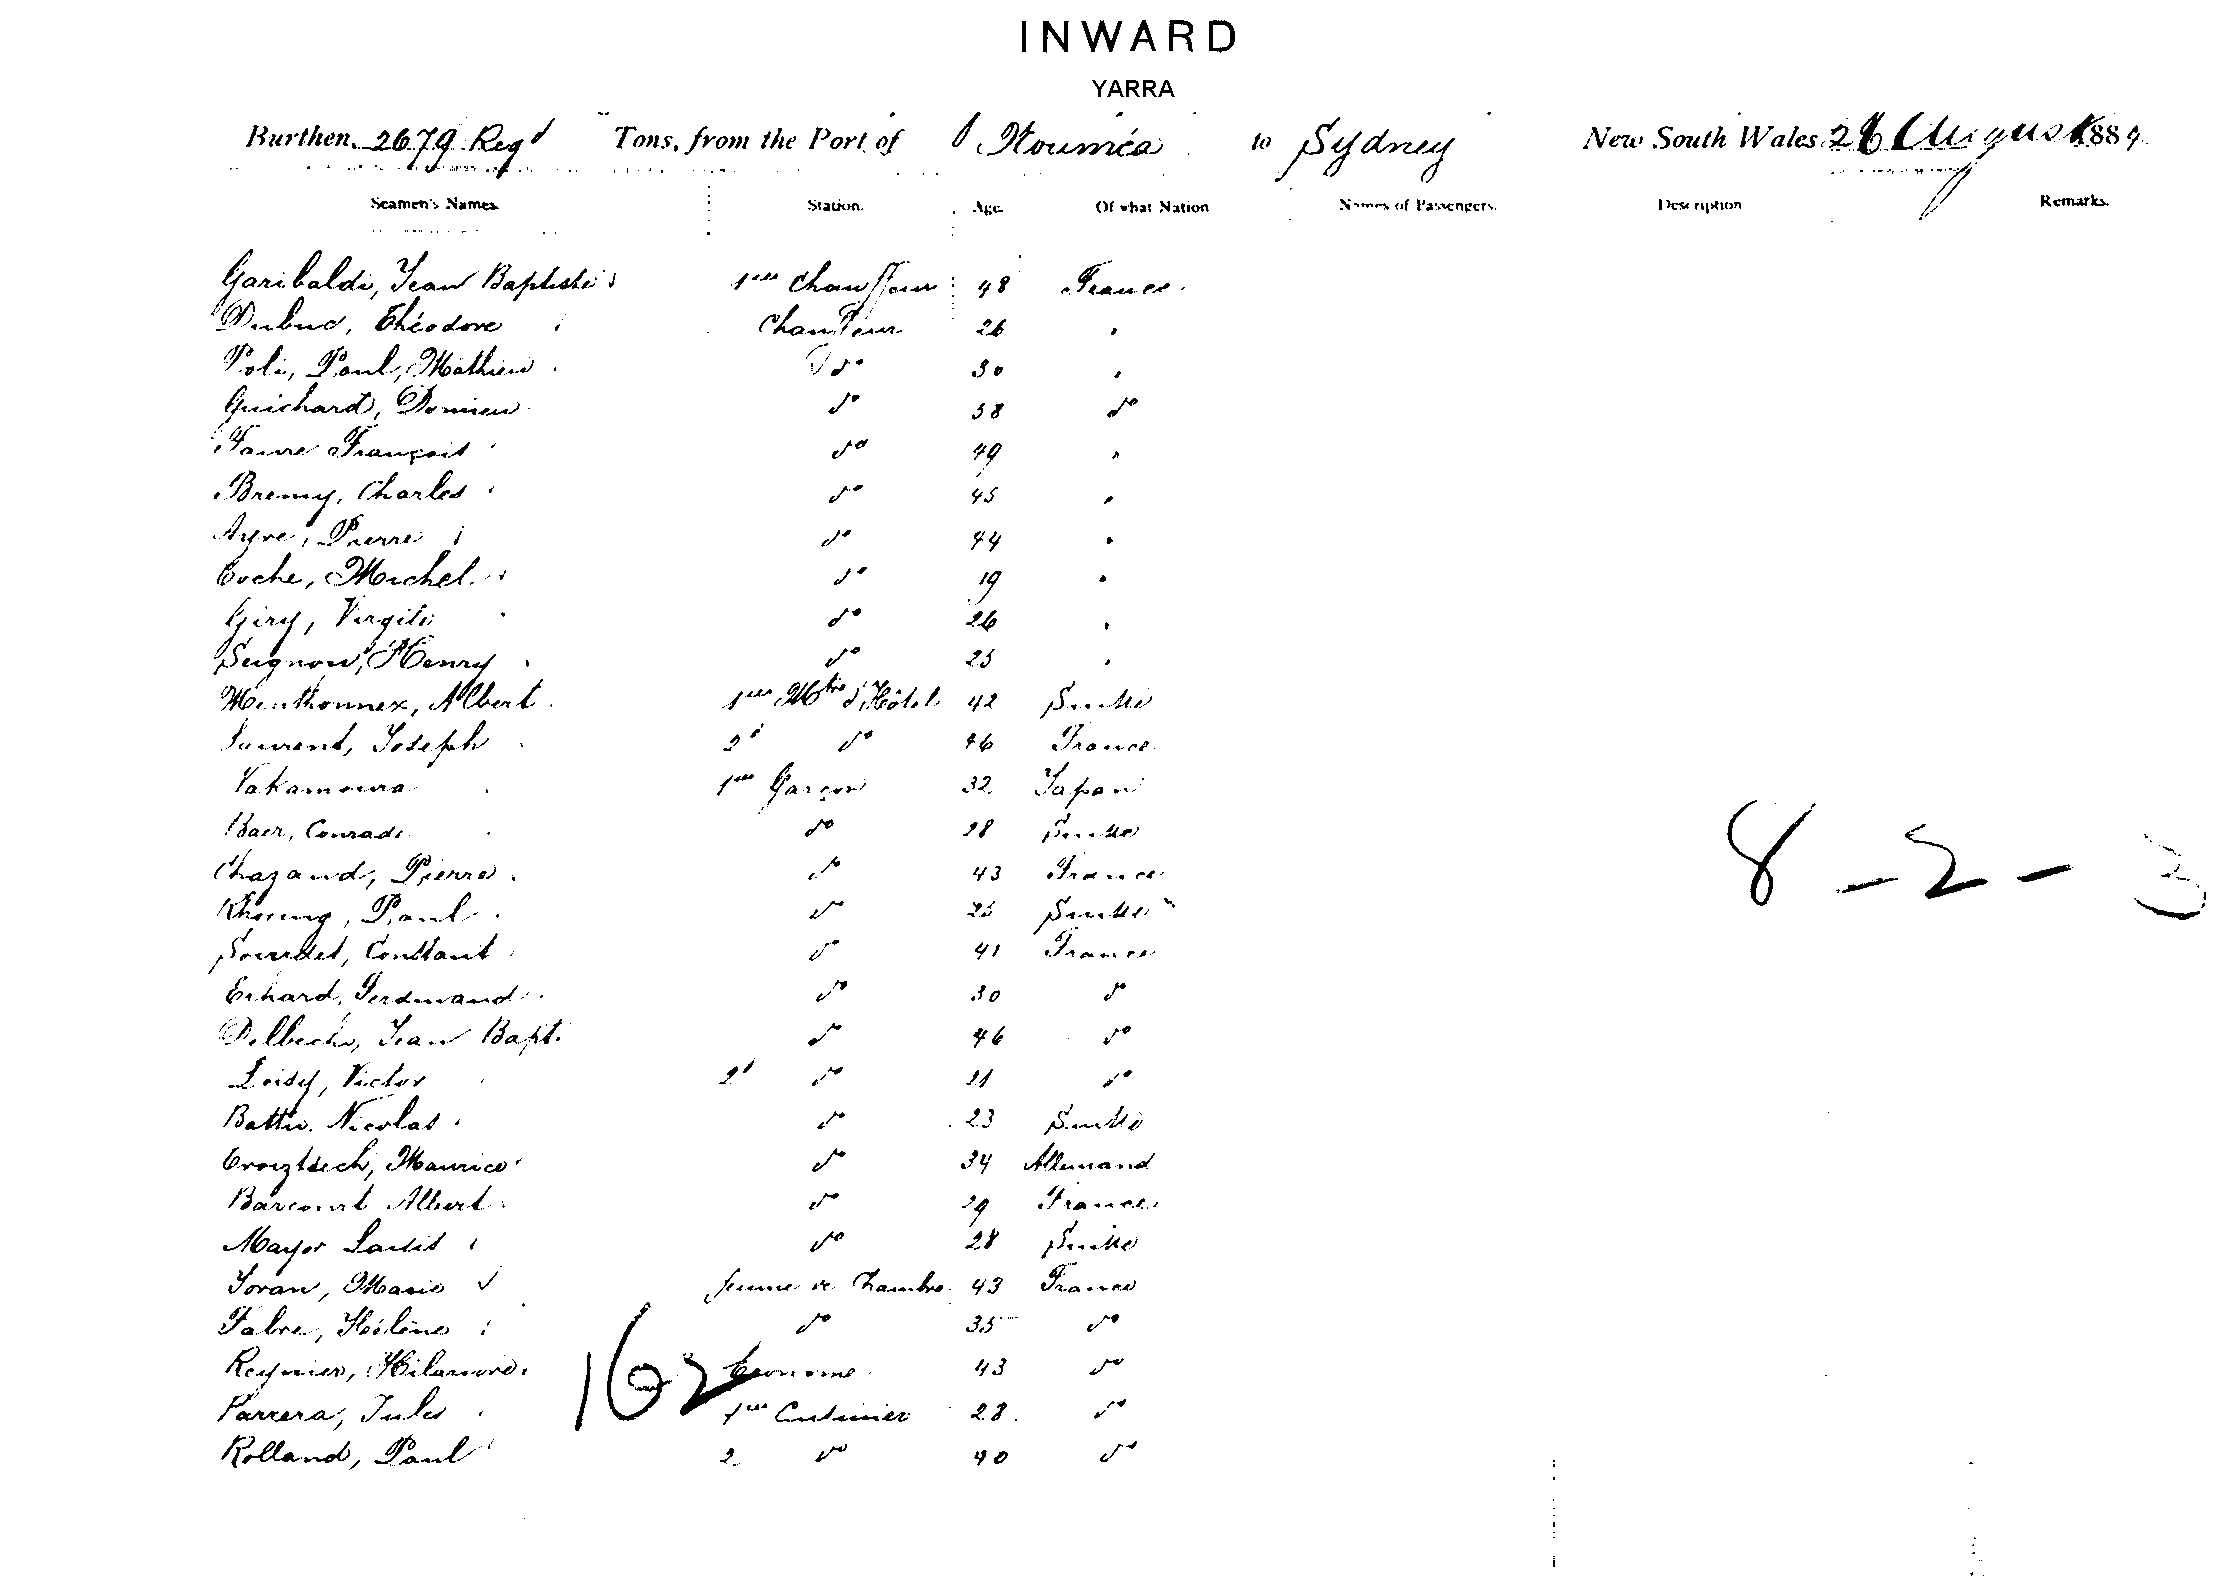 INWARD
YARRA
Burthen. 2679 Regd Tons, from the Port of Nouméa to Sydney New South Wales 28 August 1889
Seamen's Names. Station. Age. Of what Nation Names of Passengers. Description Remarks.
Garibaldi, Jean Baptiste 1er Chauffeur 48 France
Dubuc, Théodore Chauffeur 26 "
Poli, Paul, Mathieu do 30 "
Guichard, Damien do 38 do
Faure François do 49 "
Bremy, Charles do 45 "
Ayre, Pierre do 44 "
Coche, Michel do 19 "
Giry, Virgile do 26 "
Seignou, Henry do 25 "
Menthonnex, Albert 1er Mtre d'Hôtel 42 Suisse
Laurent, Joseph 2d do 46 France
Yakamoura 1er Garçon 32 Japan
Baer, Conrad do 28 Suisse
Chazaud, Pierre do 43 France
Paul do 25 Suisse
Sourdet, Constant do 41 France
Erhard, Ferdinand do 30 do
Delbecke, Jean Bapt. do 46 do
Loisy, Victor 2d do 21 do
Nicolas do 23 Suisse
Maurice do 34 Allemand
Barcourt Albert do 29 France
Mayor Louis do 28 Suisse
Joran, Marie femme de Chambre 43 France
Fabre, Hélène do 35 do
Reynier, Économe 43 do
Parrera, Jules 1er Cuisinier 28 do
Rolland, Paul 2 do 40 do
8 - 2 - 3
162